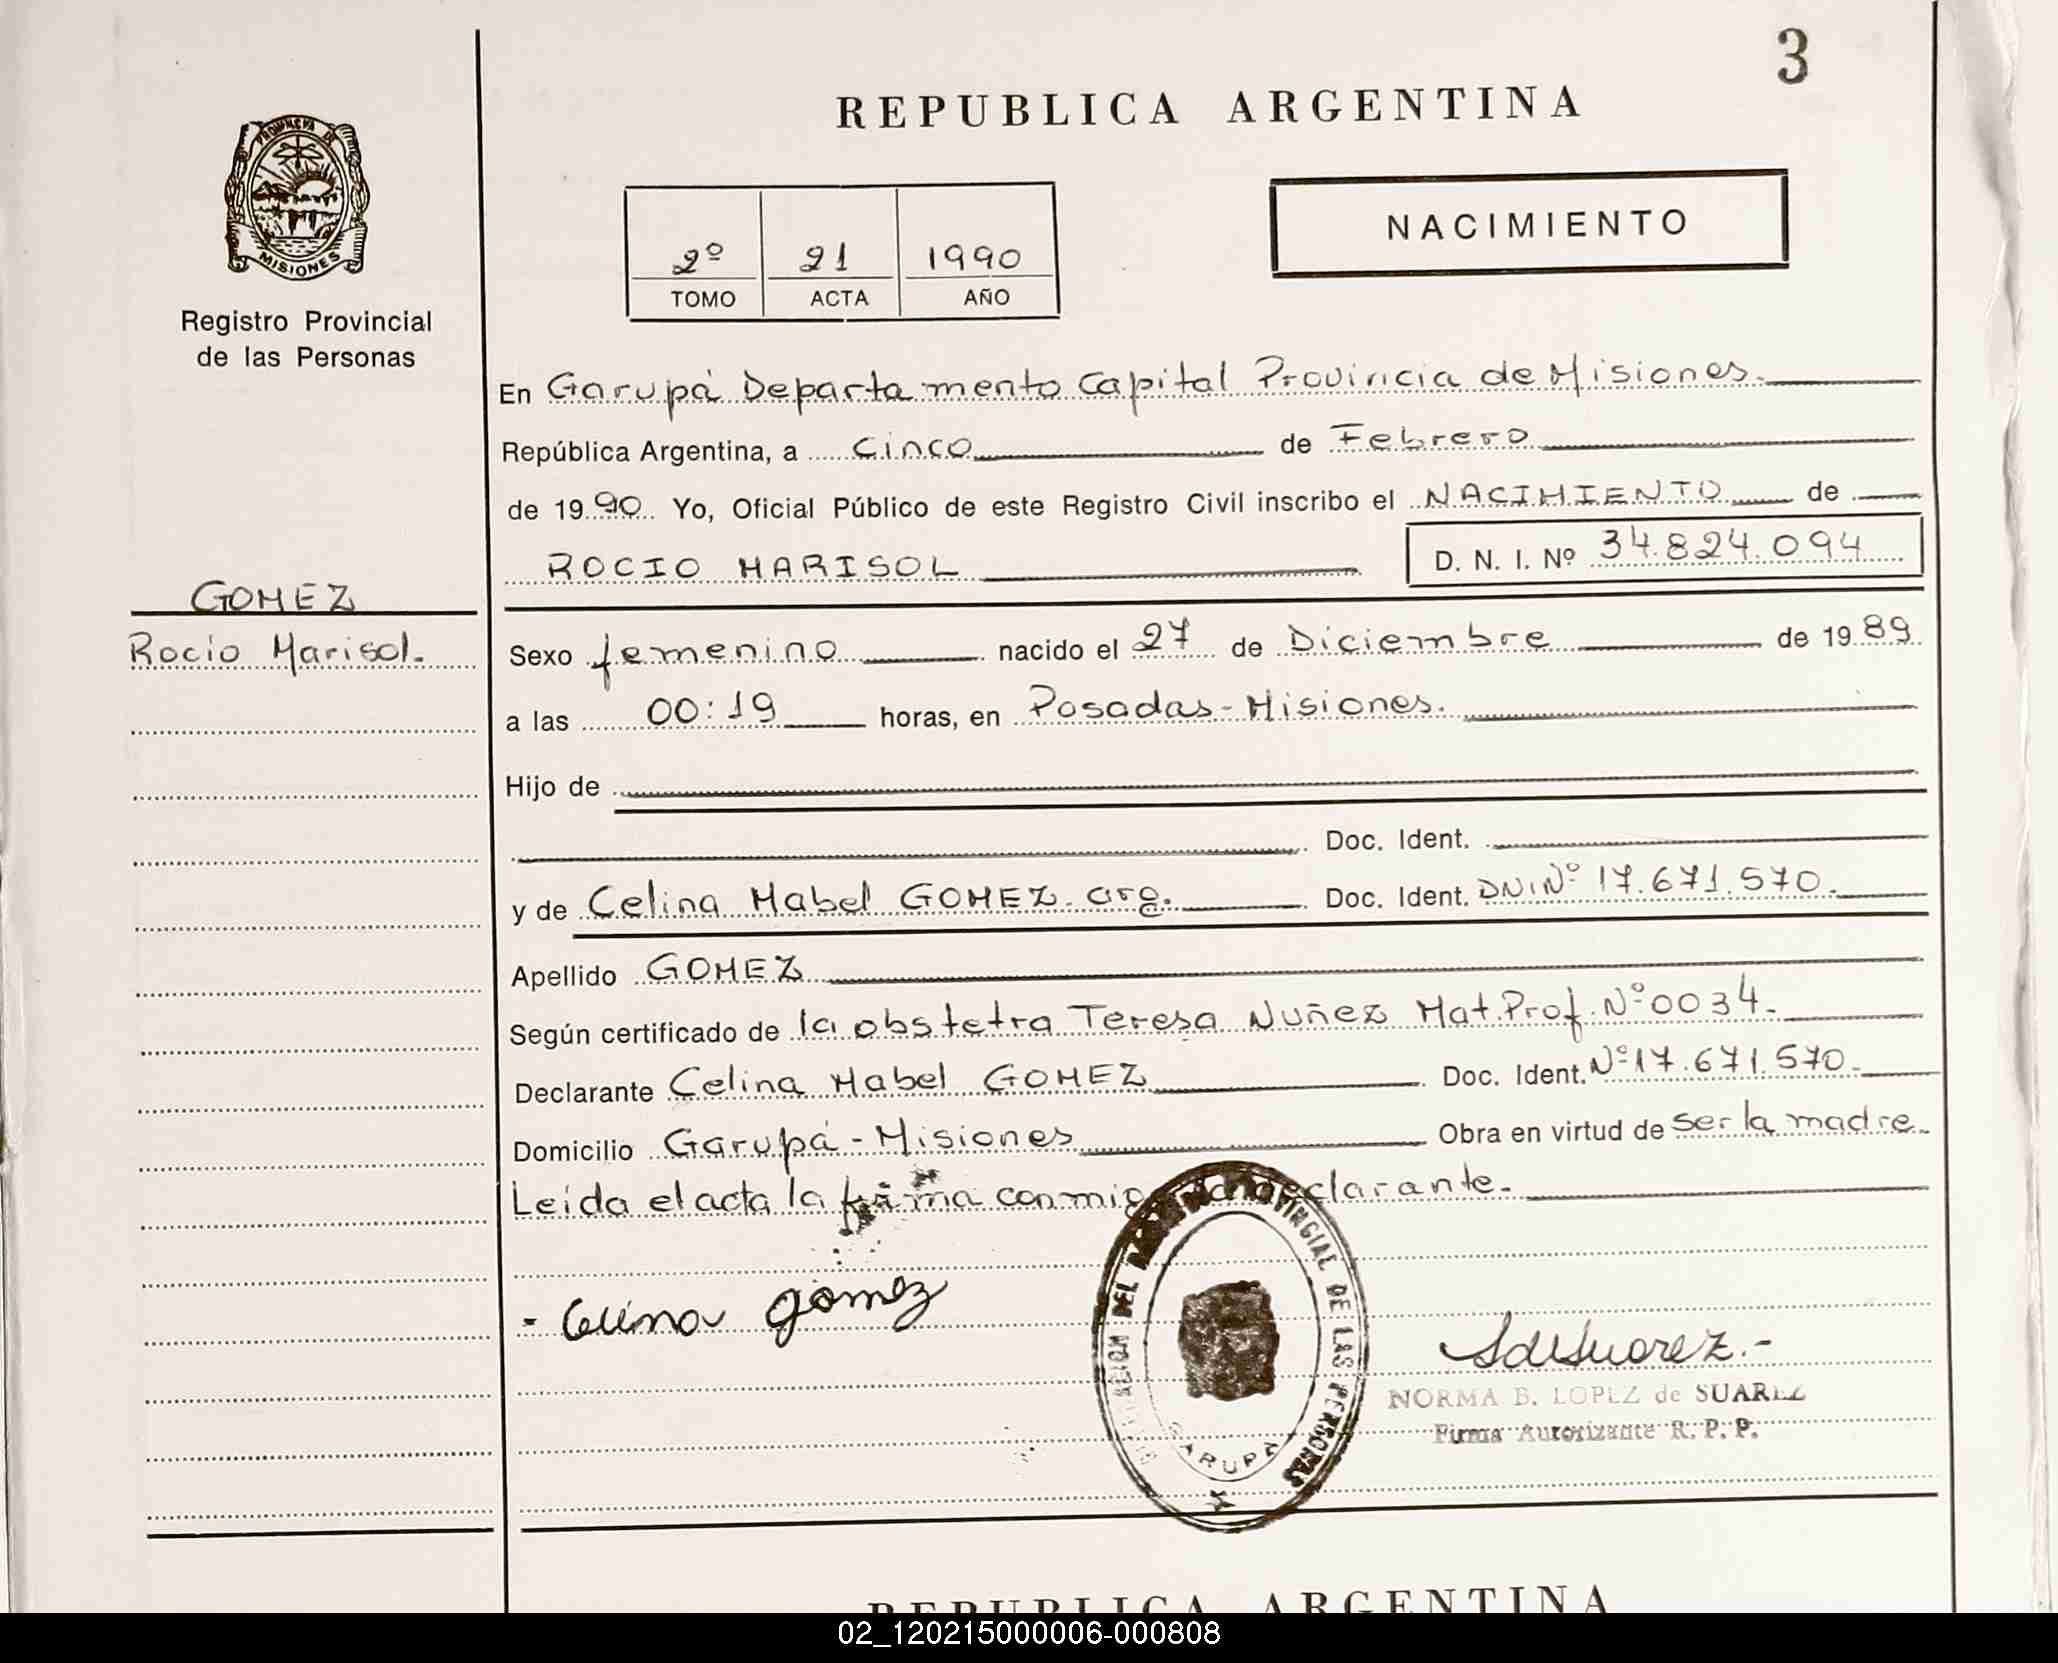 3
REPUBLICA ARGENTINA
PROVINCIA DE
MISIONES
Registro Provincial
de las Personas
2º 21 1990
TOMO ACTA AÑO
NACIMIENTO
En Garupá Departamento Capital Provincia de Misiones.
República Argentina, a cinco de Febrero
de 1990 Yo, Oficial Público de este Registro Civil inscribo el NACIMIENTO de
ROCIO MARISOL D. N. I. Nº 34.824.094
GOMEZ
Rocío Marisol.
Sexo femenino nacido el 27 de Diciembre de 1989
a las 00:19 horas, en Posadas-Misiones.
Hijo de
Doc. Ident.
y de Celina Mabel GOMEZ. arg. Doc. Ident. DNI Nº 17.671.570.
Apellido GOMEZ
Según certificado de la obstetra Teresa Nuñez Mat. Prof. Nº 0034.
Declarante Celina Mabel GOMEZ Doc. Ident. Nº 17.671.570.
Domicilio Garupá - Misiones Obra en virtud de ser la madre.
Leída el acta la firma conmigo la declarante.
- Celina gómez
DEL PROVINCIAL DE LAS PERSONAS
GARUPA
NORMA B. LOPEZ de SUAREZ
Firma Autorizante R. P. P.
REPUBLICA ARGENTINA
02_120215000006-000808